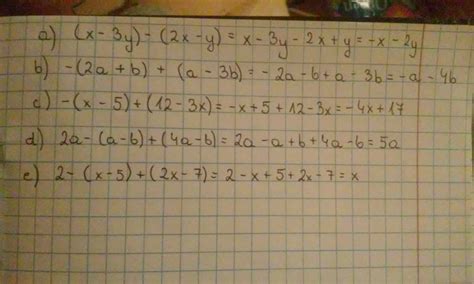 a) (x-3y)-(2x-y)=x-3y-2x+y=-x-2y
b) -(2a+b)+(a-3b)=-2a-b+a-3b=-a-4b
c) -(x-5)+(12-3x)=-x+5+12-3x=-4x+17
d) 2a-(a-b)+(4a-b)=2a-a+b+4a-b=5a
e) 2-(x-5)+(2x-7)=2-x+5+2x-7=x